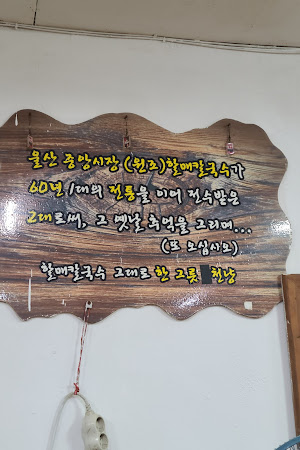 울산 중앙시장 (원조)할매칼국수가
60년 1대의 전통을 이어 전수받은
2대로써, 그 옛날 추억을 그리며...
(또 오십시오)
할매칼국수 그대로 한 그릇 천냥